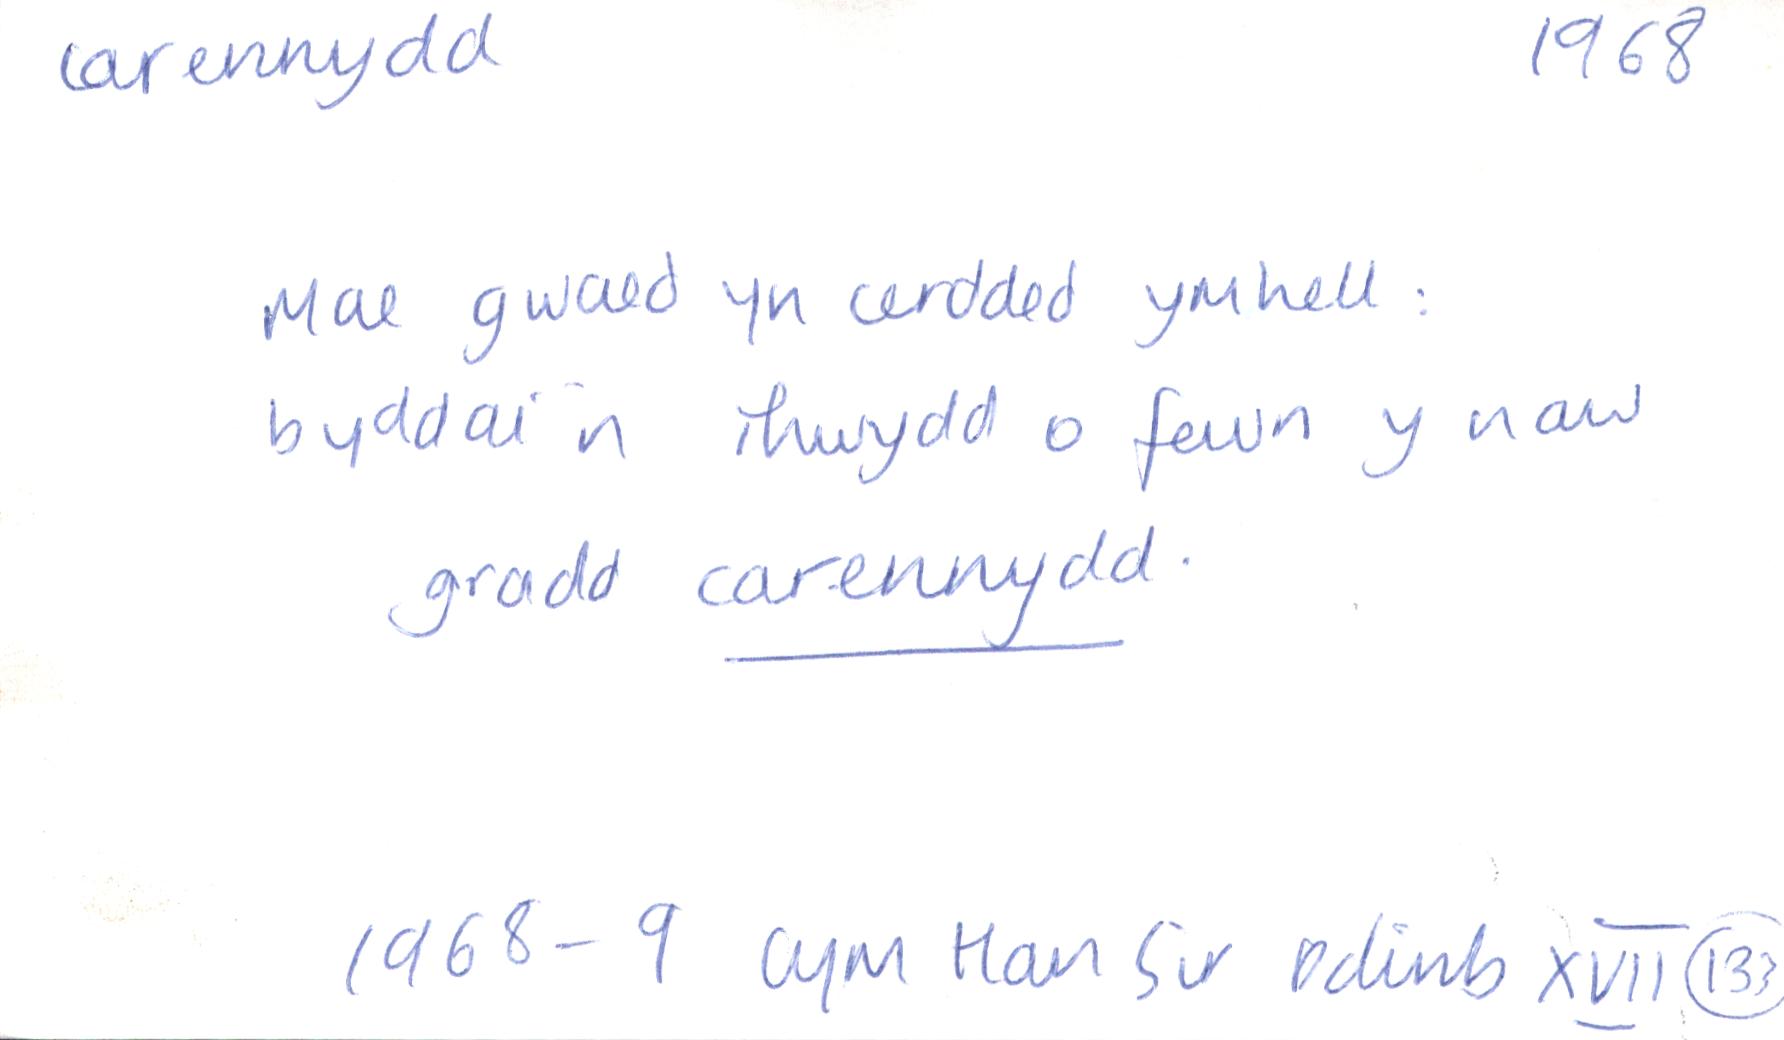 carennydd 1968
Mae gwaed yn cerdded ymhell:
byddai'n rhwydd o fewn y naw
gradd carennydd.
1968-9 Cym Han Sir Ddinb XVII 133